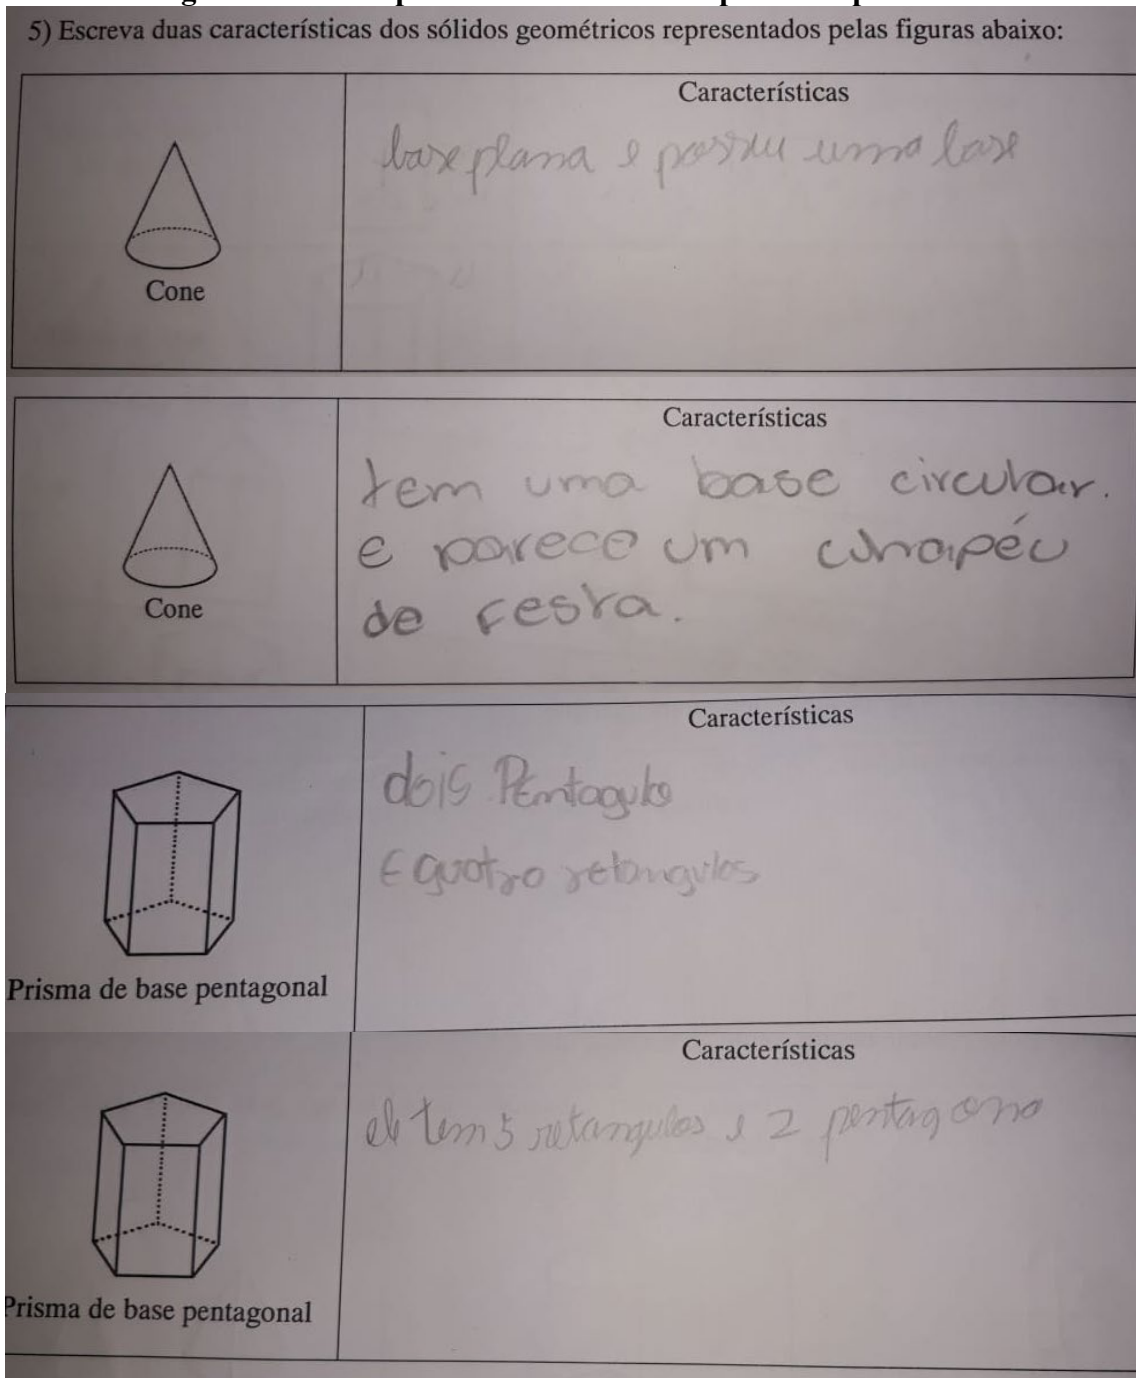 5) Escreva duas características dos sólidos geométricos representados pelas figuras abaixo:
Características
base plana e possui uma base
Cone
Características
tem uma base circular.
e parece um chapéu
de festa.
Cone
Características
dois Pentagulo
E quatro retangulos
Prisma de base pentagonal
Características
ele tem 5 retangulos e 2 pentagono
Prisma de base pentagonal